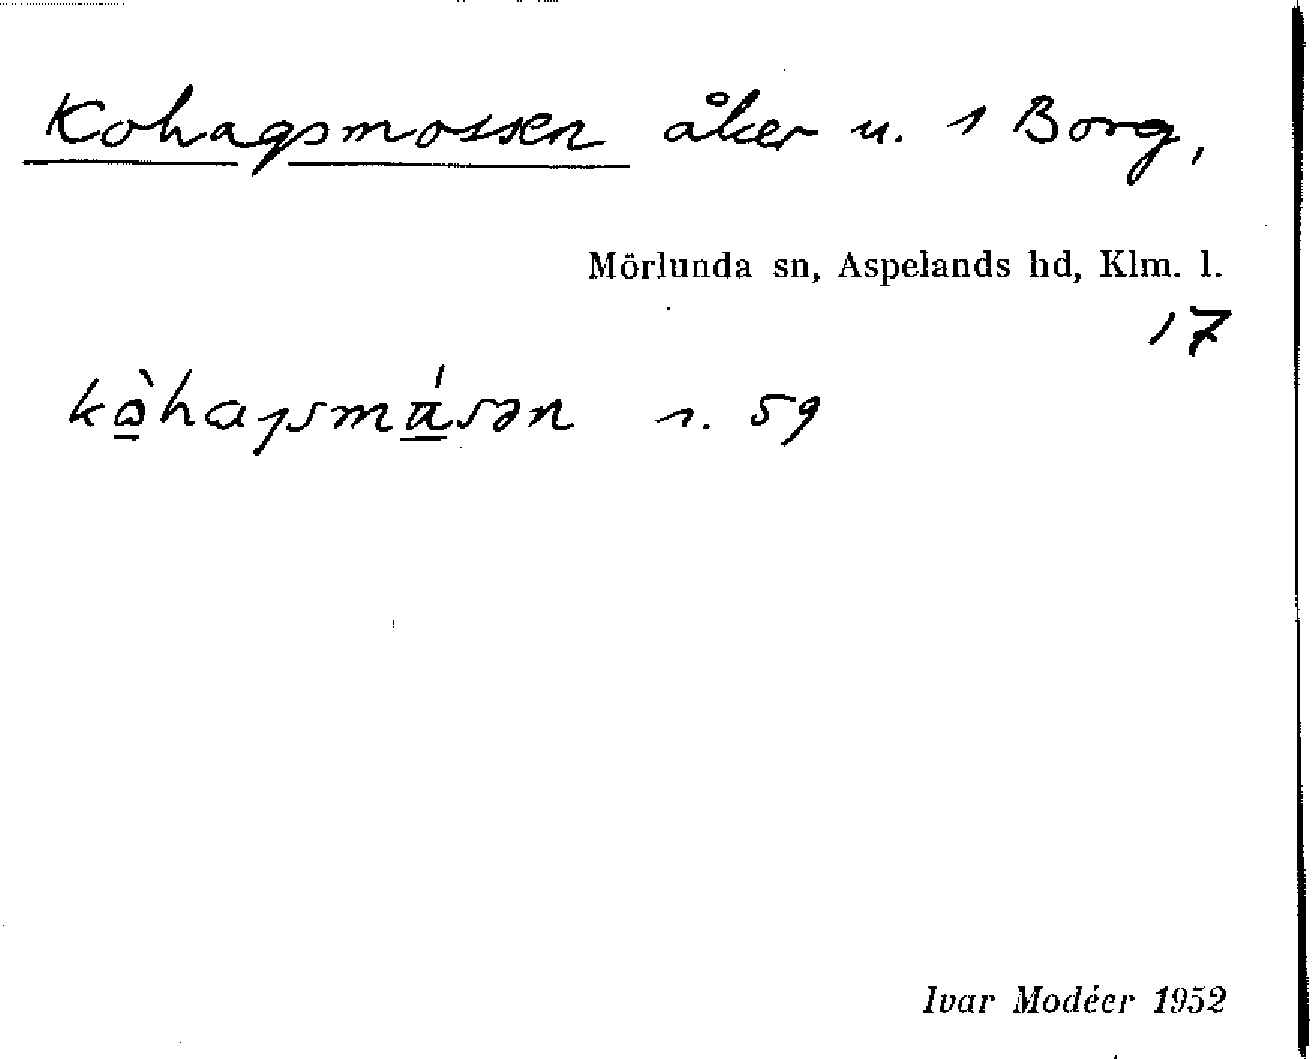 Kohagsmossen åker u. 1 Borg,
Mörlunda sn, Aspelands hd, Klm. l.
17
s. 59
Ivar Modéer 1952